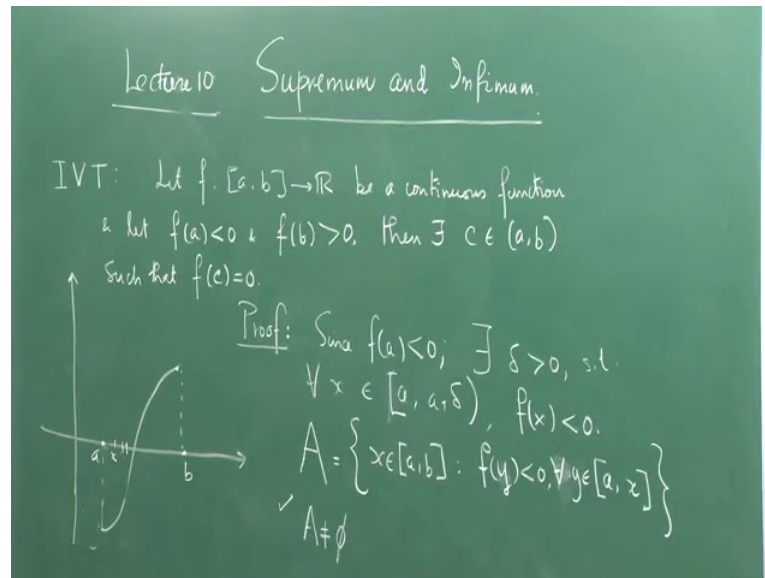 Lecture 10 Supremum and Infimum.
IVT: Let f. [a,b]→ℝ be a continuous function
& let f(a)<0 & f(b)>0, then ∃ c ∈ (a,b)
Such that f(c)=0.
Proof: Since f(a)<0, ∃ δ>0, s.t.
∀ x ∈ [a, a+δ), f(x)<0.
A = {x∈[a,b] : f(y)<0, ∀ y∈[a, x]}
✓ A≠φ
a x
b